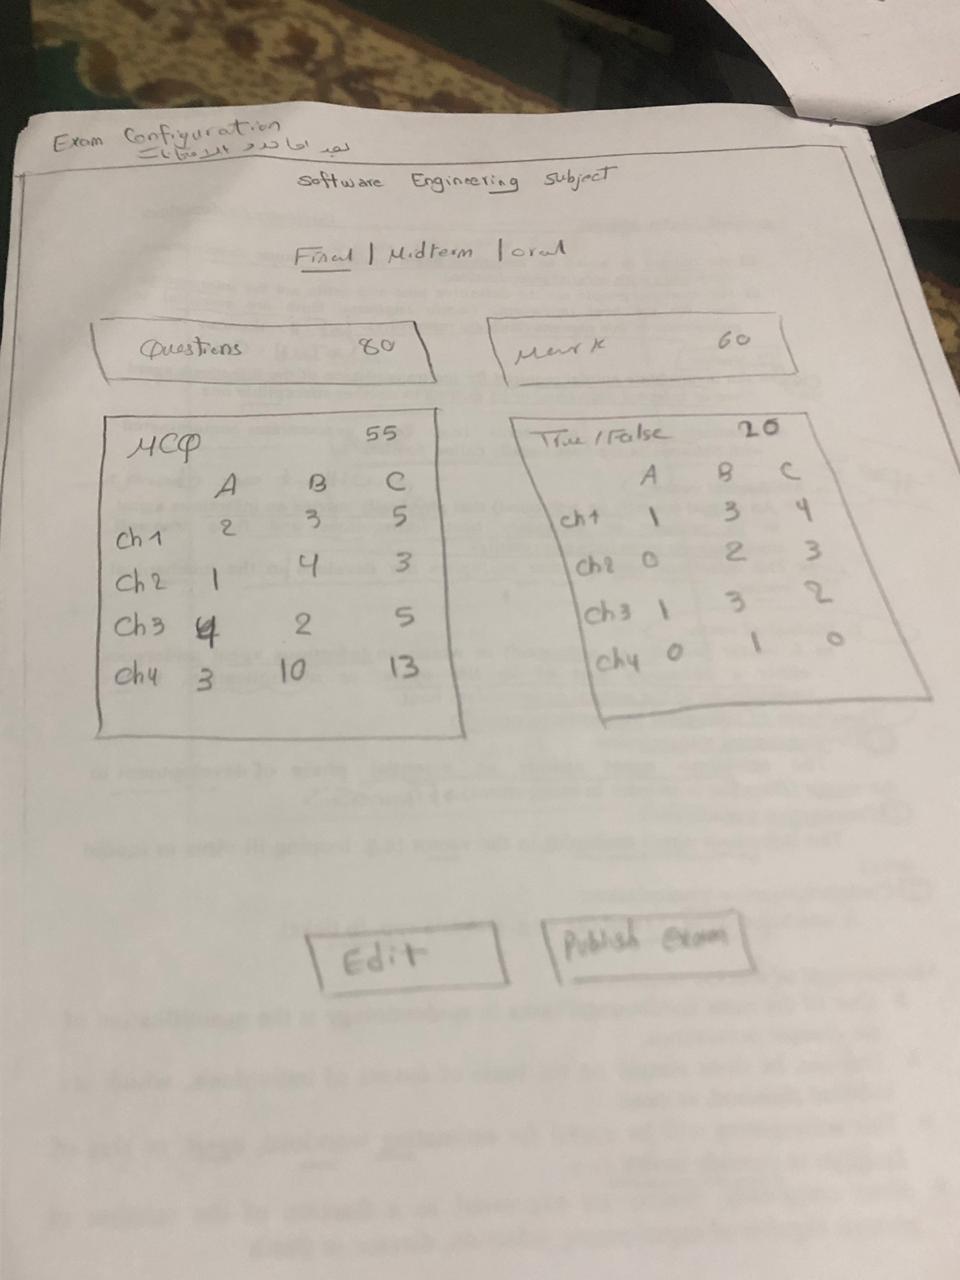 Exam Configuration
Software Engineering subject
Final | Midterm | oral
Questions 80
Mark 60
MCQ 55
A B C
ch1 2 3 5
ch2 1 4 3
ch3 4 2 5
ch4 3 10 13
True/False 20
A B C
ch1 1 3 4
ch2 0 2 3
ch3 1 3 2
ch4 0 1 0
Edit
Publish exam